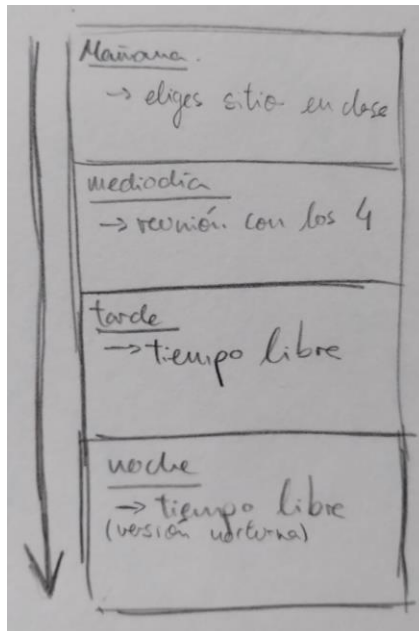 Mañana.
→ eliges sitio en clase
mediodía
→ reunión con los 4
tarde
→ tiempo libre
noche
→ tiempo libre
(versión nocturna)